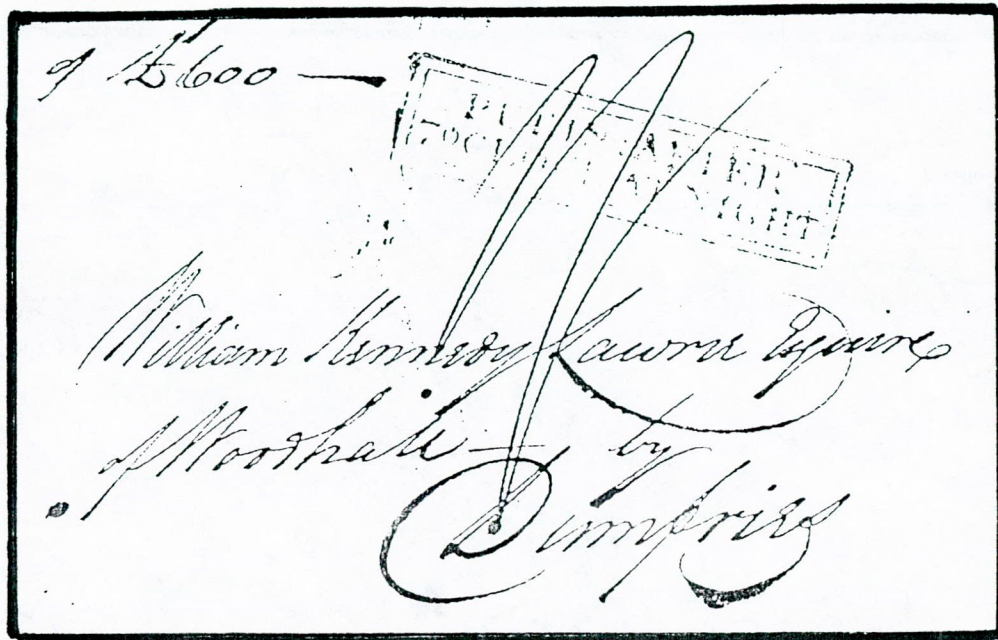 of £600 —
PUT IN AFTER
EIGHT
William Kennedy Lawrie Esquire
of Woodhall — by
Dumfries